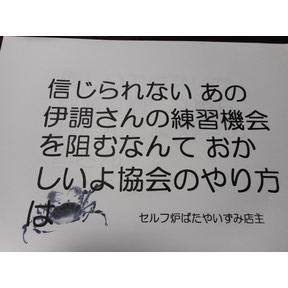 信じられない あの
伊調さんの練習機会
を阻むなんて おか
しいよ協会のやり方
は
セルフ炉ばたやいずみ店主